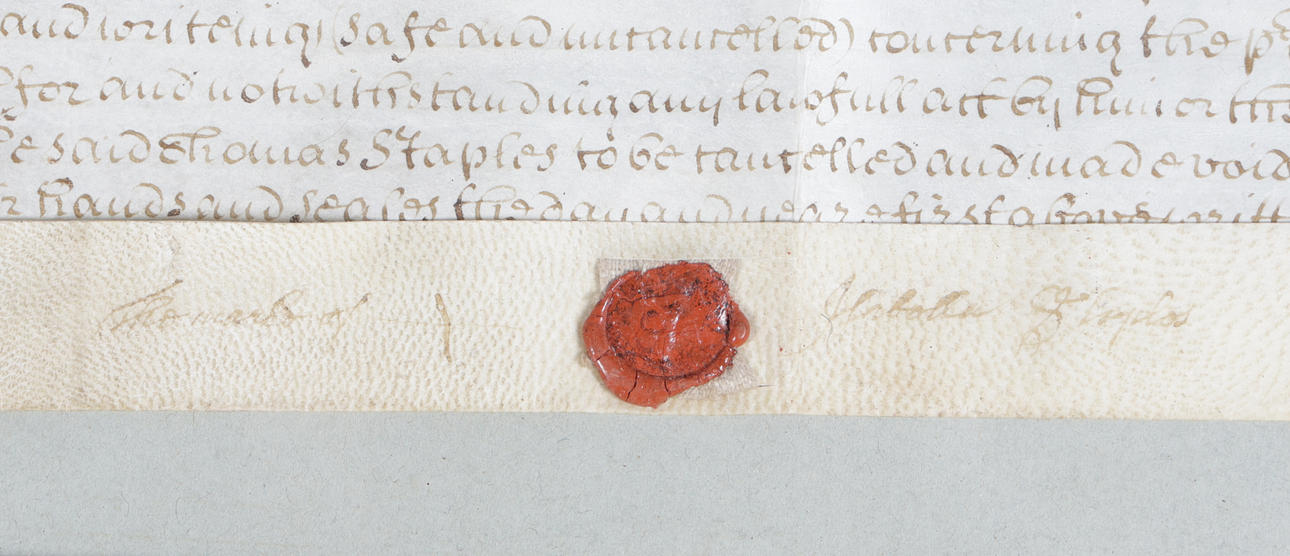 and writeing (safe and uncancelled) concerning the
for and notwithstanding any lawfull act by him or
said Thomas Staples to be cancelled and made void
hands and seales the day and yeare first above writt
The marke of Isabella Staples